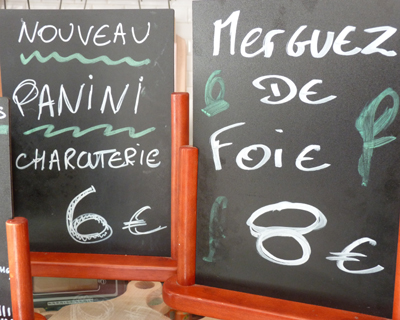 NOUVEAU
PANINI
CHARCUTERIE
6 €
MERGUEZ
DE
FOIE
8 €